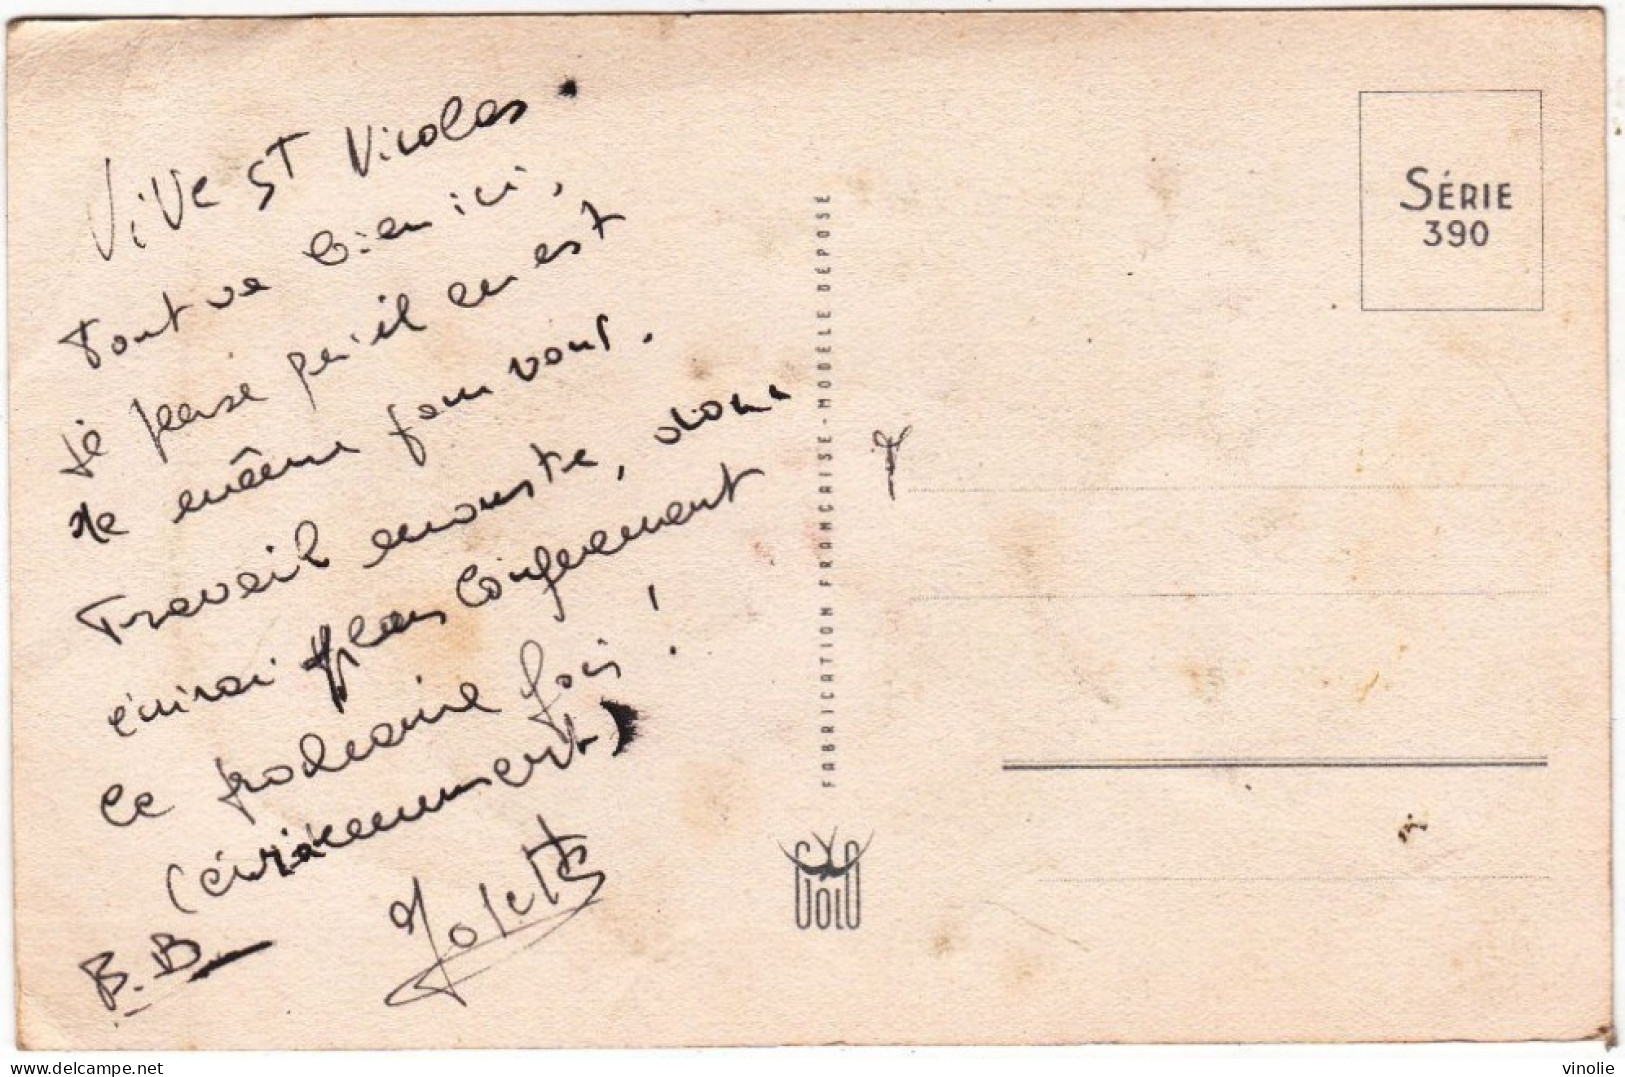 Vive St Nicolas.
Tout va bien ici,
je pense qu'il en est
de même pour vous.
Travail monstre, donc
écrirai plus longuement
la prochaine fois !
(évidemment)
B.B.
FABRICATION FRANÇAISE - MODÈLE DÉPOSÉ
GOLO
SÉRIE
390
vinolie